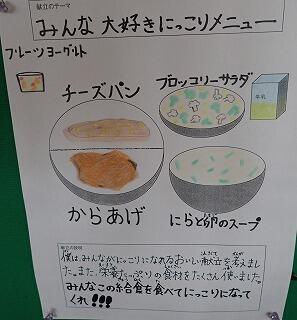 献立のテーマ
みんな大好きにっこりメニュー
フルーツヨーグルト
チーズパン
ブロッコリーサラダ
牛乳
からあげ
にらと卵のスープ
献立の説明
僕は、みんながにっこりになれるおいしい献立を考えまし
た。また、栄養たっぷりの食材をたくさん使いました。
みんなこの給食を食べてにっこりになって
くれ!!!